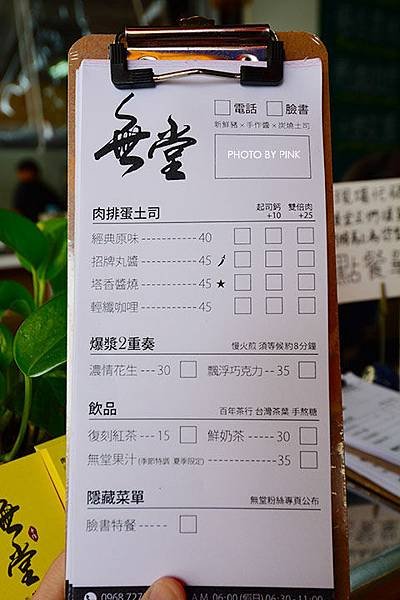 無堂
電話 臉書
新鮮豬×手作醬×炭燒土司
PHOTO BY PINK
肉排蛋土司 起司鈣+10 雙倍肉+25
經典原味 ----------- 40
招牌丸醬 ----------- 45
塔香醬燒 ----------- 45 ★
輕纖咖哩 ----------- 45
爆漿2重奏 慢火煎 須等候約8分鐘
濃情花生 --- 30 飄浮巧克力 -- 35
飲品 百年茶行 台灣茶葉 手熬糖
復刻紅茶 --- 15 鮮奶茶 ----- 30
無堂果汁(季節特調 夏季限定) ----- 35
隱藏菜單 無堂粉絲專頁公布
臉書特餐 -----
0968 727
A.M. 06:00 (假日) 06:30 - 11:00
無堂
點餐